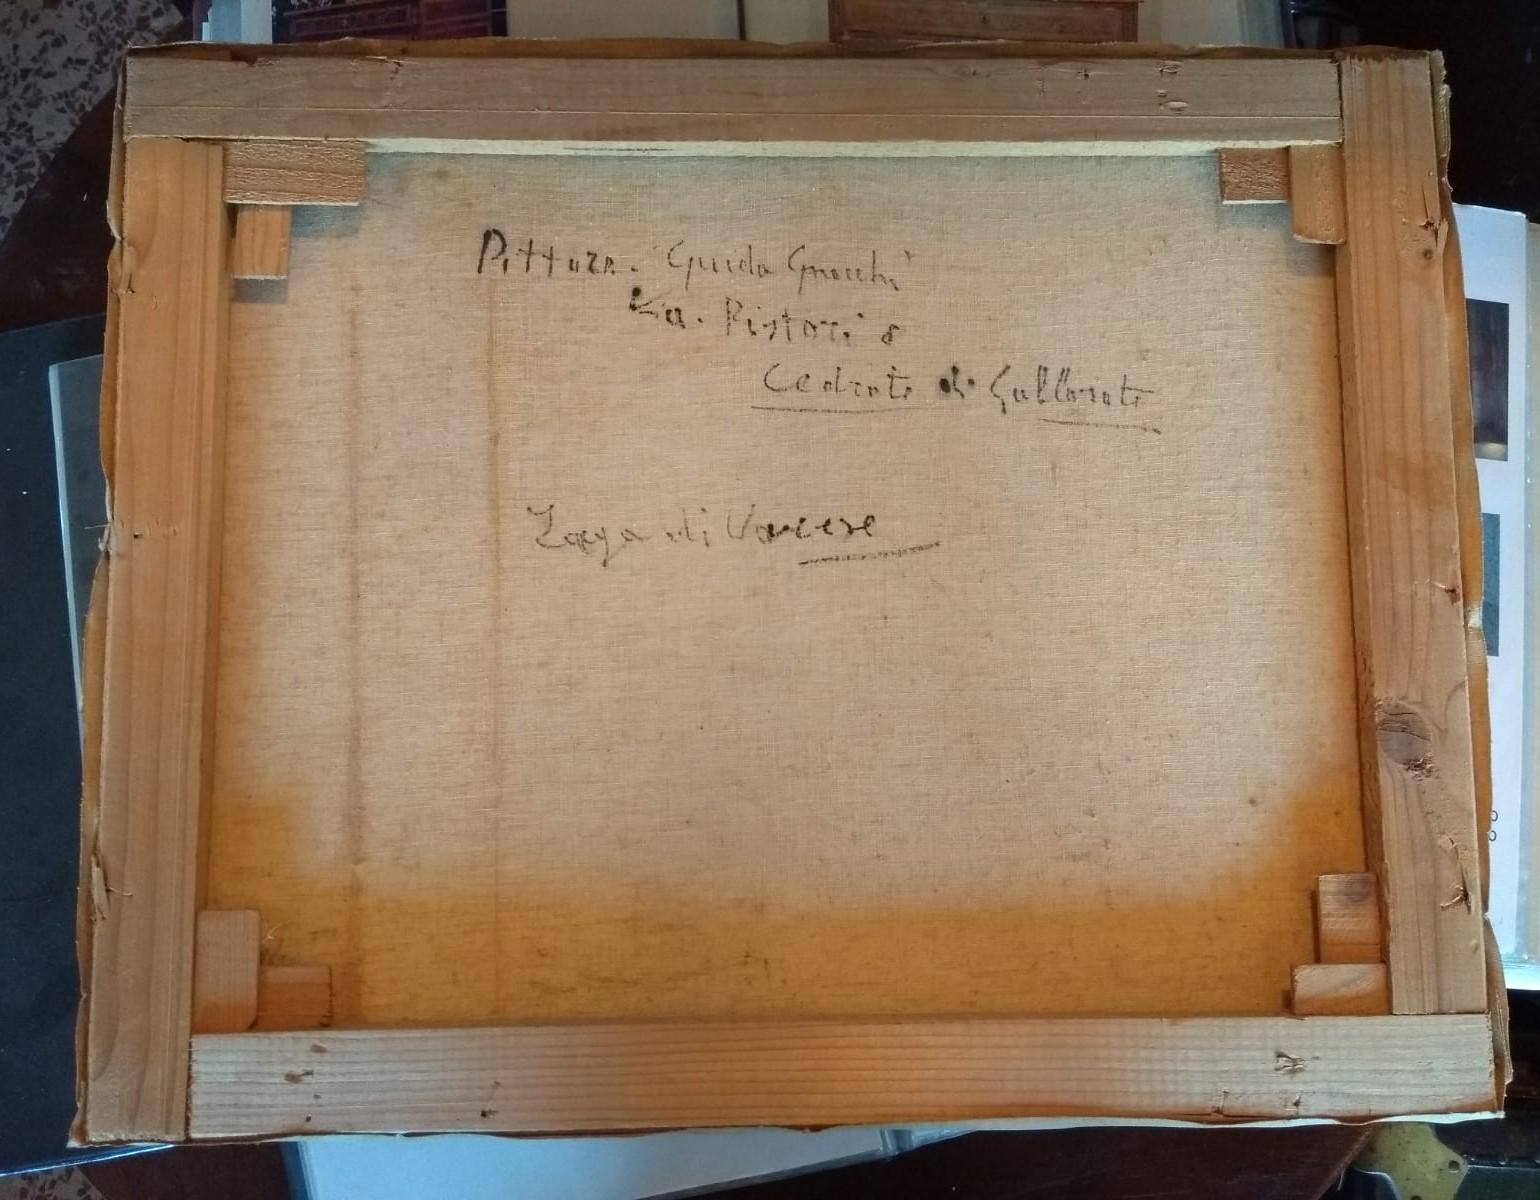 Pittore. Guido Gnocchi
Via. Pistori 8
Cedrate di Gallarate
Lago di Varese